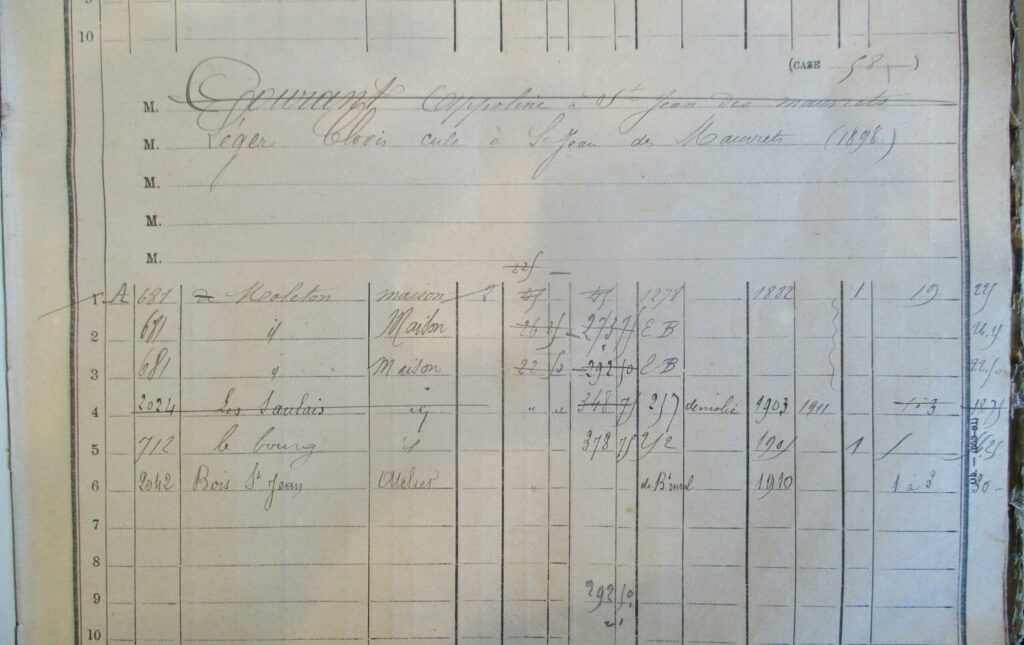 10
(CASE 58 )
M. Gourant Appoline à St Jean des mauvrets
M. Léger Clovis cult à St Jean des Mauvrets (1898)
M.
M.
M.
225
1 A 681 de Moleton maison 2 1278 1882 1 19 225
2 681 id Maison 26 25 273 75 E B 26.25
3 681 id Maison 22 50 292 50 E B 22.50
4 2024 Les Saulais id " " 348 75 257 démolie 1903 1911 1 à 3 18.75
5 712 le bourg id 378 75 252 1905 1
6 2042 Bois St Jean Atelier " de Bt rural 1910 1 à 3 30
7
8
9 292 50
10